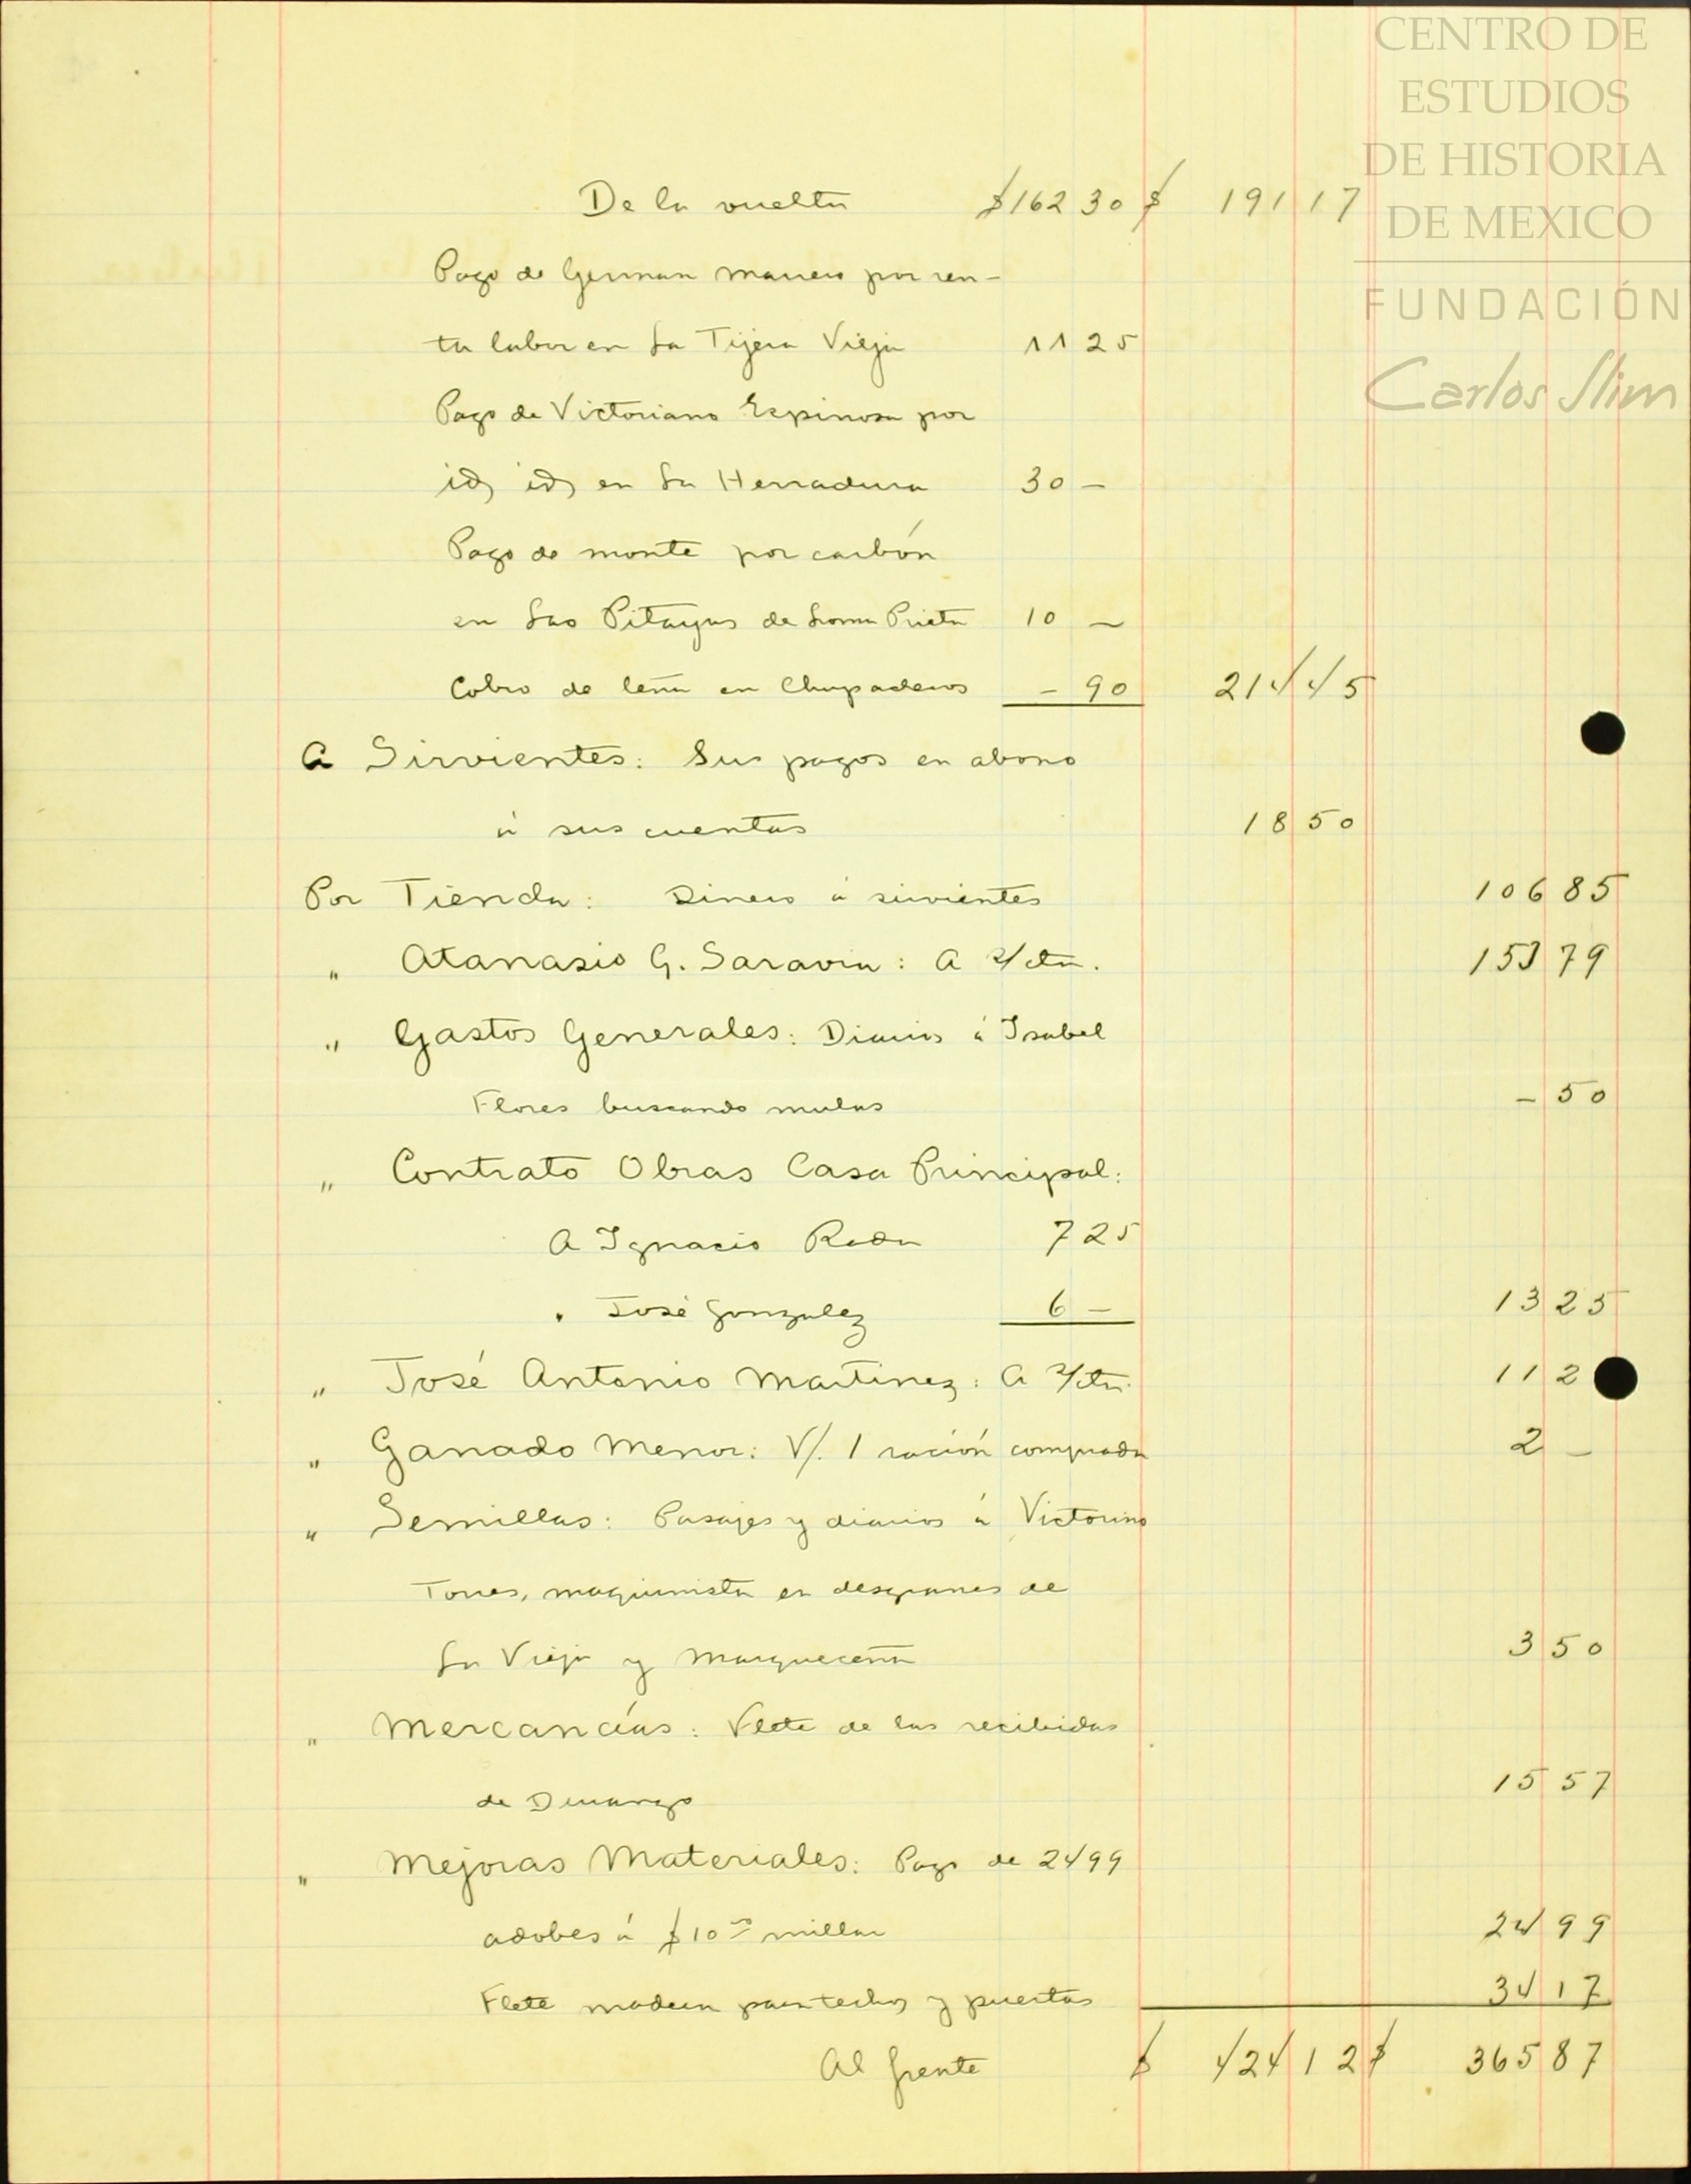 CENTRO DE
ESTUDIOS
DE HISTORIA
DE MEXICO
FUNDACIÓN
Carlos Slim
De la vuelta $162 30 $ 191 17
Pago de German Manero por ren-
ta labor en La Tijera Vieja 11 25
Pago de Victoriano Espinosa por
id, id, en La Herradura 30 —
Pago de monte por carbón
en Las Pitayas de Loma Prieta 10 —
Cobro de leña en Chupaderos — 90 214 45
A Sirvientes: Sus pagos en abono
á sus cuentas 18 50
Por Tienda: Dinero á sirvientes 106 85
" Atanasio G. Saravia: A s/cta. 153 79
" Gastos Generales: Diarios á Isabel
Flores buscando mulas — 50
" Contrato Obras Casa Principal:
A Ignacio Roda 7 25
" José Gonzalez 6 — 13 25
" José Antonio Martinez: A s/cta. 11 2
" Ganado Menor: V/. 1 ración comprada 2 —
" Semillas: Pasajes y diarios á Victorino
Torres, maquinista en desgranes de
La Vieja y Marqueceña 3 50
" Mercancías: Flete de las recibidas
de Durango 15 57
" Mejoras Materiales: Pago de 2499
adobes á $10 00 millar 24 99
Flete madera para techos y puertas 34 17
Al frente $ 424 12 $ 365 87